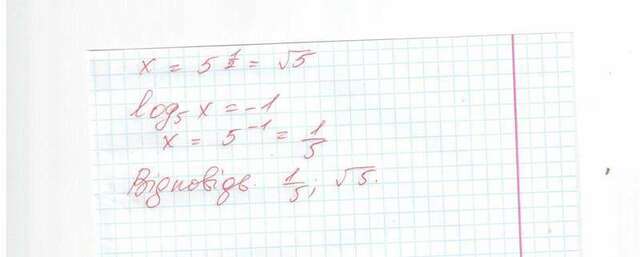 x = 5^{1/2} = √5
log₅ x = -1
x = 5^{-1} = 1/5
Відповідь. 1/5; √5.